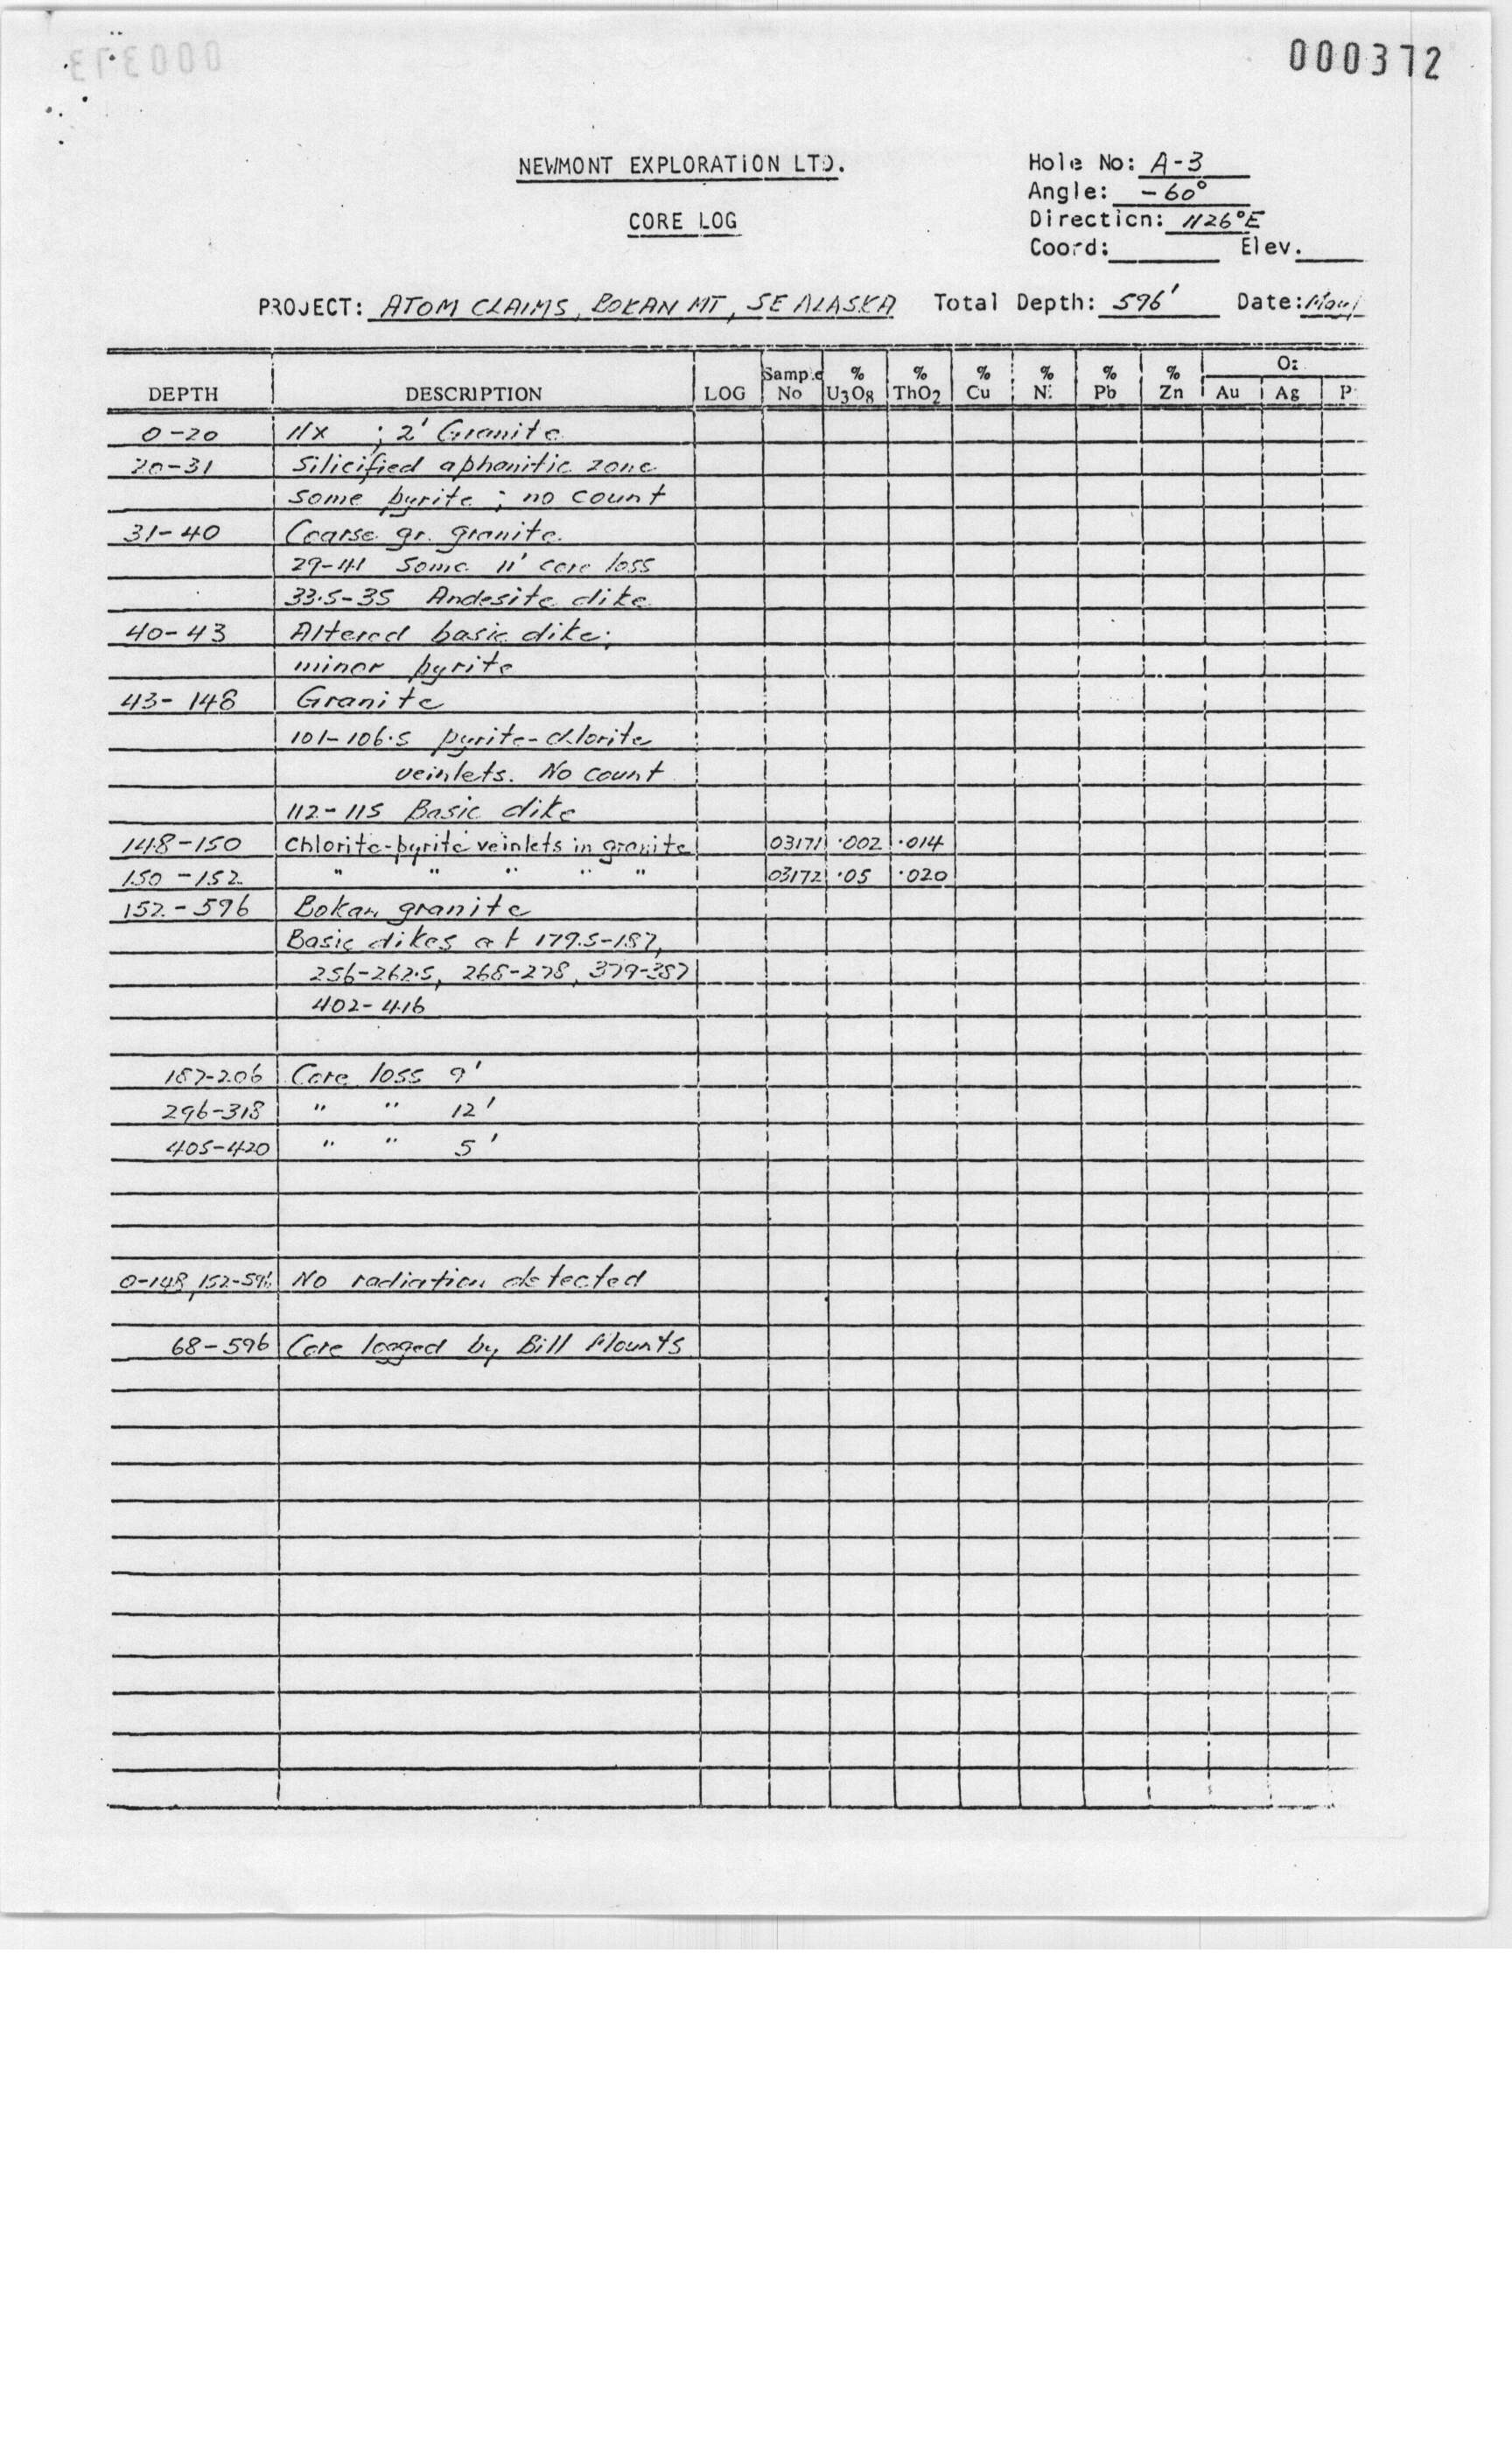 000372
000373
NEWMONT EXPLORATION LTD.
CORE LOG
Hole No: A-3
Angle: -60°
Direction: N26°E
Coord: Elev.
PROJECT: ATOM CLAIMS, BOKAN MT, SE ALASKA Total Depth: 596' Date: May
DEPTH DESCRIPTION LOG Sample No % U3O8 % ThO2 % Cu % Ni % Pb % Zn Oz Au Ag P
0-20 NX ; 2' Granite
20-31 Silicified aphanitic zone
some pyrite ; no count
31-40 Coarse gr. granite.
29-41 Some 11' core loss
33.5-35 Andesite dike
40-43 Altered basic dike;
minor pyrite
43-148 Granite
101-106.5 pyrite-chlorite
veinlets. No count
112-115 Basic dike
148-150 Chlorite-pyrite veinlets in granite 03171 .002 .014
150-152 " " " " " 03172 .05 .020
152-596 Bokan granite
Basic dikes at 179.5-187,
256-262.5, 268-278, 379-387
402-416
187-206 Core loss 9'
296-318 " " 12'
405-420 " " 5'
0-148, 152-596 No radiation detected
68-596 Core logged by Bill Mounts